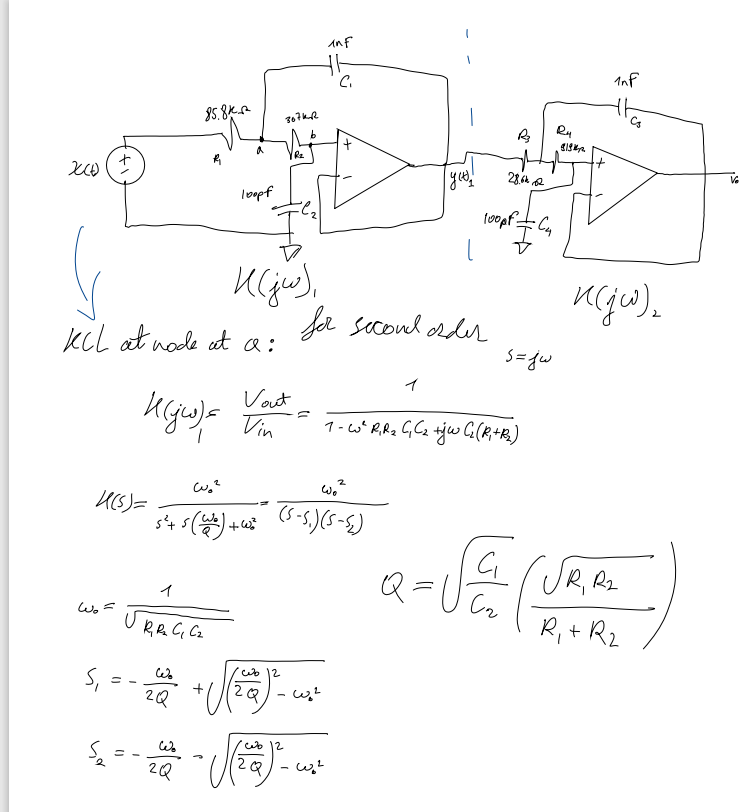 1nF
C₁
1nF
C₃
85.8kΩ
R₁
a
307kΩ
R₂
b
+
-
x(t)
+
-
100pf
C₂
y(t)₁
R₃
28.6kΩ
R₄
+
-
100pf
C₄
Vo
H(jω)₁
H(jω)₂
KCL at node at a: for second order
s=jω
H(jω)₁ = Vout/Vin = 1/(1-ω²R₁R₂C₁C₂+jωC₂(R₁+R₂))
H(s)= ω₀²/(s²+s(ω₀/Q)+ω₀²) = ω₀²/((s-s₁)(s-s₂))
Q = √(C₁/C₂) (√(R₁R₂)/(R₁+R₂))
ω₀ = 1/√(R₁R₂C₁C₂)
S₁ = -ω₀/2Q + √((ω₀/2Q)² - ω₀²)
S₂ = -ω₀/2Q - √((ω₀/2Q)² - ω₀²)